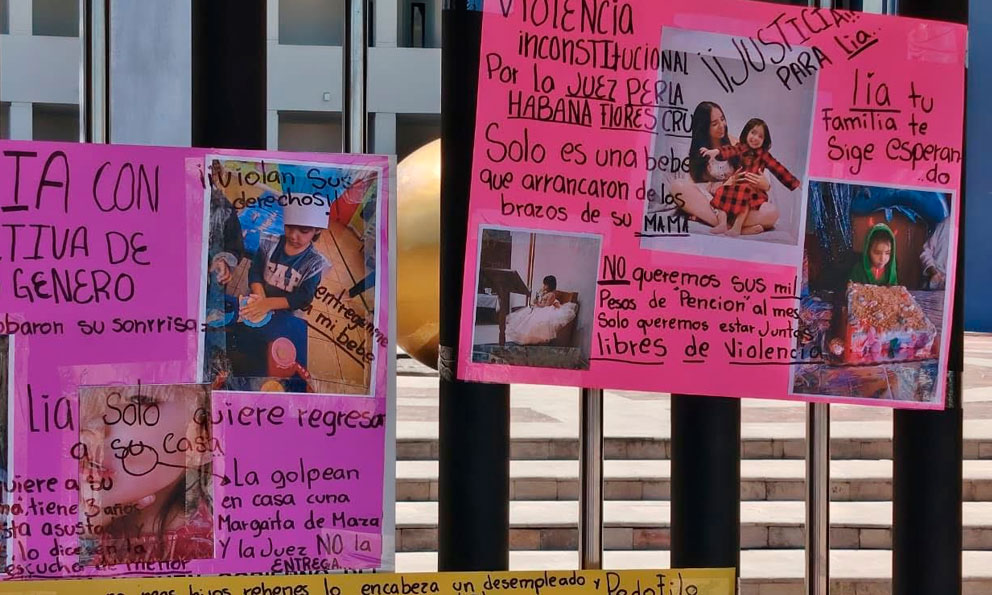 IA CON
TIVA DE
GENERO
obaron su sonrrisa
¡¡Violan sus
derechos!!
entreguenme
a mi bebe
Lia Solo quiere regresar
a su casa
quiere a su
má, tiene 3 años
sta asusta
lo dice en la
escucha de menor
La golpean
en casa cuna
Margarita de Maza
Y la Juez NO la
ENTREGA
VIOLENCIA
inconstitucional
Por la JUEZ PERLA
HABANA FLORES CRU
Solo es una bebe
que arrancaron de los
brazos de su MAMA
¡¡JUSTICIA!!
PARA lia..
lia tu
Familia te
Sige esperan
do
NO queremos sus mil
Pesos de "Pencion" al mes
Solo queremos estar Juntas
libres de Violencia
mas hijos rehenes lo encabeza un desempleado y Pedofilo